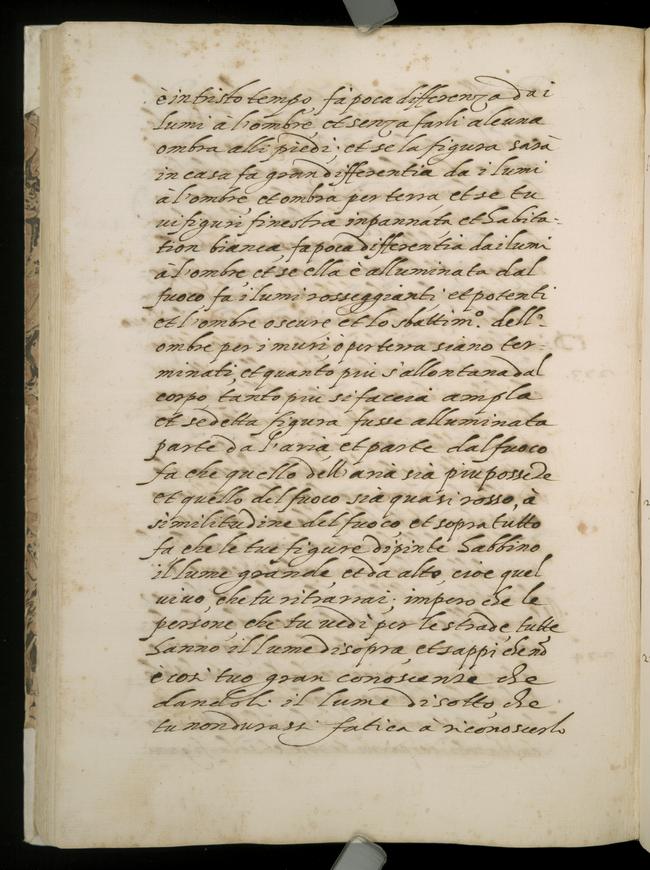 è in tristo tempo, fà poca differenza da i
lumi à l'ombre, et senza farli alcuna
ombra alli piedi; et se la figura sarà
in casa fa gran differentia da i lumi
à l'ombre, et ombra per terra et se tu
vi figuri finestra inpannata et habita=
tion bianca, fa poca differentia dai lumi
à l'ombre et se ella è alluminata dal
fuoco, fa i lumi rosseggianti, et potenti
et l'ombre oscure et lo sbattim.º dell'
ombre per i muri, ò per terra siano ter=
minati, et quanto piu s'allontana dal
corpo, tanto piu si faccia ampla
et se detta figura fusse alluminata
parte da l'aria, et parte dal fuoco
fa che quello dell'aria sia piu possēte
et quello del fuoco sia quasi rosso, à
similitudine del fuoco, et sopra tutto
fa che le tue figure dipinte habbino
il lume grande, et da alto, cioe quel
vivo, che tu ritrarrai; impero che le
persone che tu vedi per le strade, tutte
hanno il lume di sopra, et sappi che nō
è cosi tuo gran conoscente che
dandoli il lume di sotto, che
tu non durassi fatica à riconoscerlo